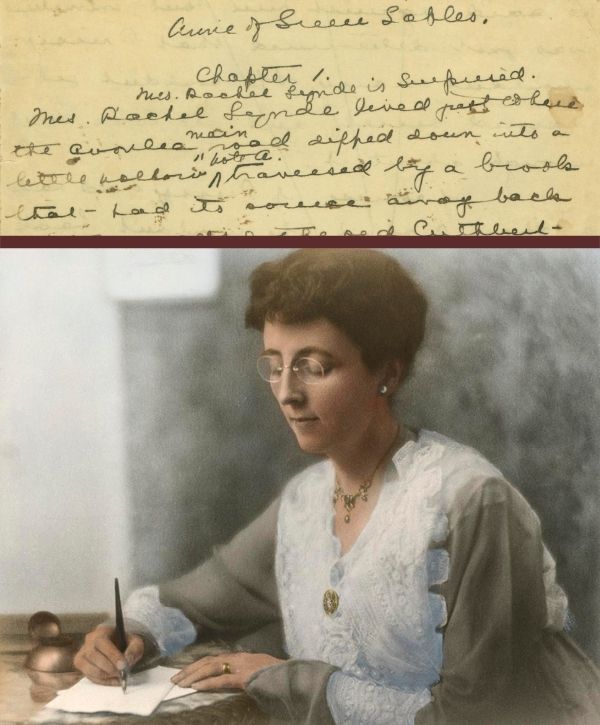 Anne of Green Gables.
Chapter 1.
Mrs. Rachel Lynde is Surprised.
Mrs. Rachel Lynde lived just where
main
the Avonlea road dipped down into a
Note A.
little hollow traversed by a brook
that had its source away back
the old Cuthbert